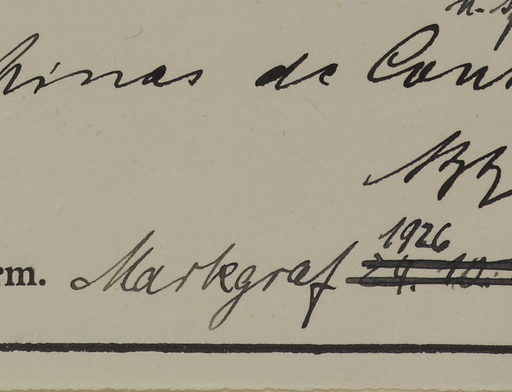 n. sp
hinas de Con
rm. Markgraf 1926 24. 10.